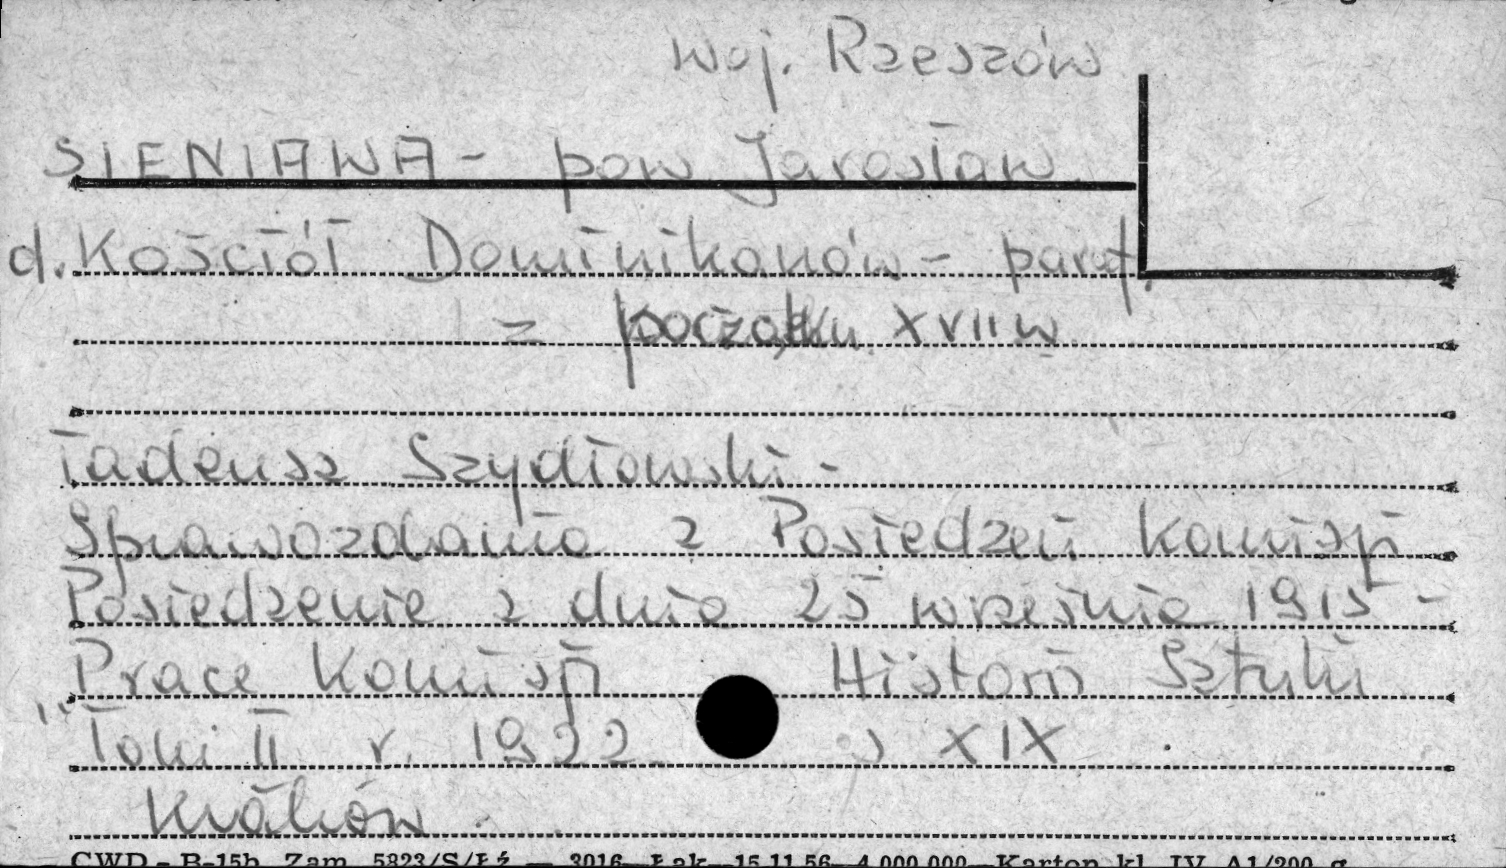 woj. Rzeszów
SIENIAWA - pow Jarosław.
d. Kościół Dominikanów - paraf.
z początku XVII w
Tadeusz Szydłowski -
Sprawozdania z Posiedzeń Komisji
Posiedzenie z dnia 25 września 1915 -
Prace Komisji Historii Sztuki
" Tom II r. 1922 s XIX
Kraków.
CWD - B-15b Zam. 5823/S/Łź — 3016 — Łak — 15.11.56 — 4.000.000 — Karton kl. IV A1/200 g